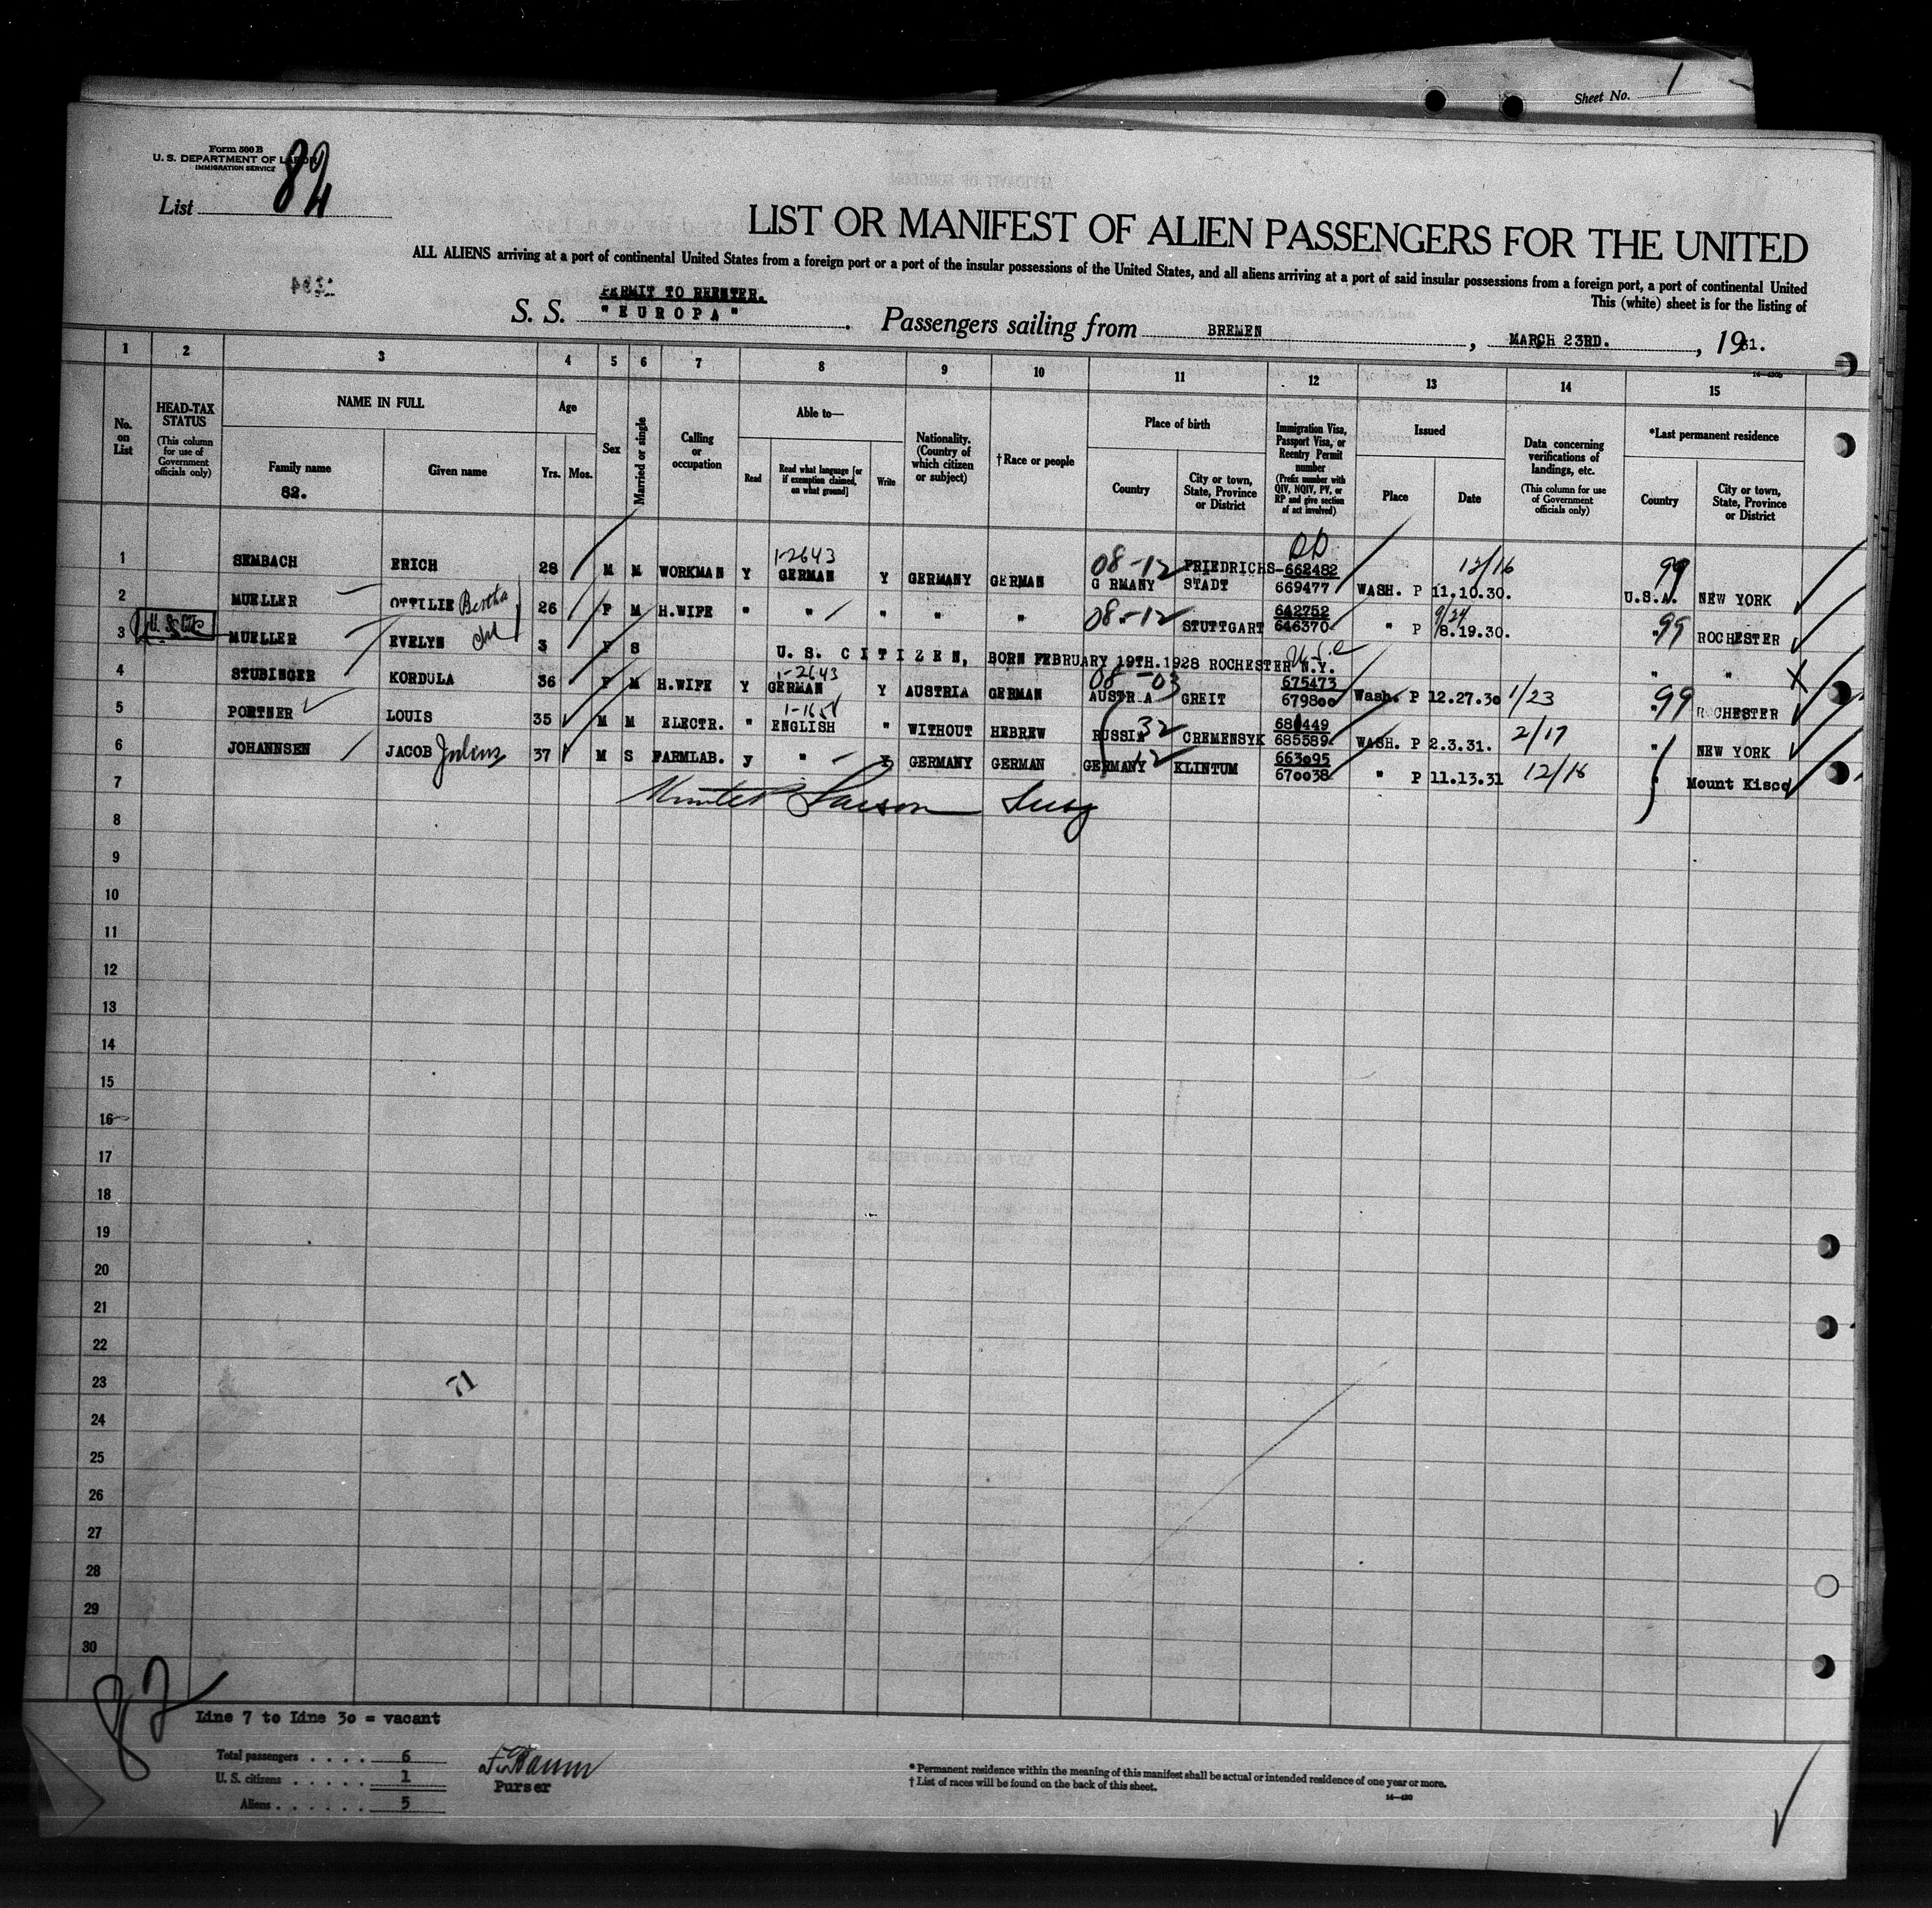 Sheet No. 1
Form 500 B
U. S. DEPARTMENT OF LABOR
IMMIGRATION SERVICE
List 82
LIST OR MANIFEST OF ALIEN PASSENGERS FOR THE UNITED
ALL ALIENS arriving at a port of continental United States from a foreign port or a port of the insular possessions of the United States, and all aliens arriving at a port of said insular possessions from a foreign port, a port of continental United
This (white) sheet is for the listing of
PERMIT TO REENTER.
S. S. "EUROPA". Passengers sailing from BREMEN, MARCH 23RD., 1931.
1 2 3 4 5 6 7 8 9 10 11 12 13 14 15
No. on List
HEAD-TAX STATUS (This column for use of Government officials only)
NAME IN FULL
Family name 82.
Given name
Age Yrs. Mos.
Sex
Married or single
Calling or occupation
Able to—
Read
Read what language [or if exemption claimed, on what ground]
Write
Nationality. (Country of which citizen or subject)
†Race or people
Place of birth
Country
City or town, State, Province or District
Immigration Visa, Passport Visa, or Reentry Permit number (Prefix number with QIV, NQIV, PV, or RP and give section of act involved)
Issued
Place
Date
Data concerning verifications of landings, etc. (This column for use of Government officials only)
*Last permanent residence
Country
City or town, State, Province or District
1 SEMBACH ERICH 28 M M WORKMAN Y 1-2643 GERMAN Y GERMANY GERMAN 08-12 G RMANY FRIEDRICHS-STADT 662482 669477 WASH. P 11.10.30. 12/16 99 U.S.A. NEW YORK
2 MUELLER OTTILIE Bertha 26 F M H.WIFE " " " " " 08-12 STUTTGART 642752 646370 " P 8.19.30. 9/24 99 " ROCHESTER
3 MUELLER EVELYN 3 F S U. S. CITIZEN, BORN FEBRUARY 19TH.1928 ROCHESTER N.Y. " "
4 STUBINGER KORDULA 36 F M H.WIFE Y 1-2643 GERMAN Y AUSTRIA GERMAN 08-03 AUSTR.A GREIT 675473 679800 Wash. P 12.27.30 1/23 99 " ROCHESTER
5 PORTNER LOUIS 35 M M ELECTR. " ENGLISH " WITHOUT HEBREW 32 RUSSIA CREMENSYK 685589 WASH. P 2.3.31. 2/17 " NEW YORK
6 JOHANNSEN JACOB Julius 37 M S FARMLAB. y " GERMANY GERMAN 12 GERMANY KLINTUM 663095 670038 " P 11.13.31 12/16 " Mount Kisco
7
8
9
10
11
12
13
14
15
16
17
18
19
20
21
22
23
71
24
25
26
27
28
29
30
82
Line 7 to Line 30 = vacant
Total passengers . . . . 6
U. S. citizens . . . . . 1
Aliens . . . . . . 5
Purser
* Permanent residence within the meaning of this manifest shall be actual or intended residence of one year or more.
† List of races will be found on the back of this sheet.
14—430